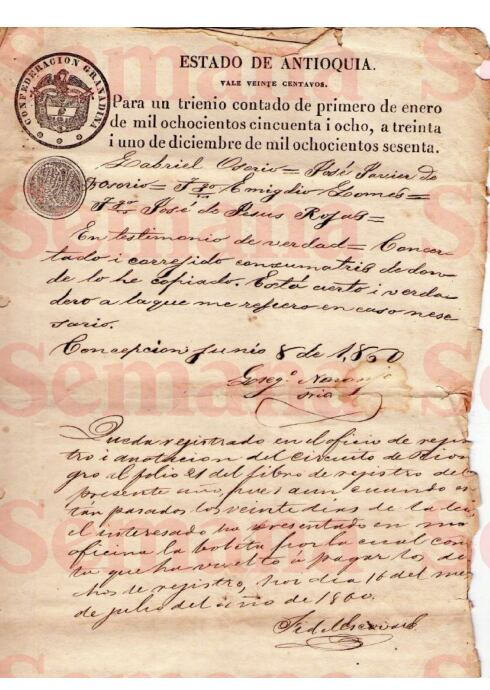 CONFEDERACION GRANADINA
ESTADO DE ANTIOQUIA.
VALE VEINTE CENTAVOS.
Para un trienio contado de primero de enero
de mil ochocientos cincuenta i ocho, a treinta
i uno de diciembre de mil ochocientos sesenta.
Gabriel Osorio = José Javier de
Osorio = Tgo Emigdio Gomes =
Tgo José de Jesus Rojas =
En testimonio de verdad = Concer-
tado i correjido con su matris de don-
de lo he copiado. Está cierto i verda
dero a la que me refiero en caso nese
sario.
Concepcion Junio 8 de 1,860
Naranjo
Srio
Queda registrado en el oficio de regis
tro i anotacion del Circuito de Rione
gro al folio 21 del libro de registro del
presente año, pues aun cuando es
tan pasados los veinte dias de la lei,
el interesado ha presentado en mi
oficina la boleta por la cual cons
ta que ha vuelto á pagar los de
chos de registro, hoi dia 16 del mes
de julio del año de 1860.
Semana
Semana
Semana
Semana